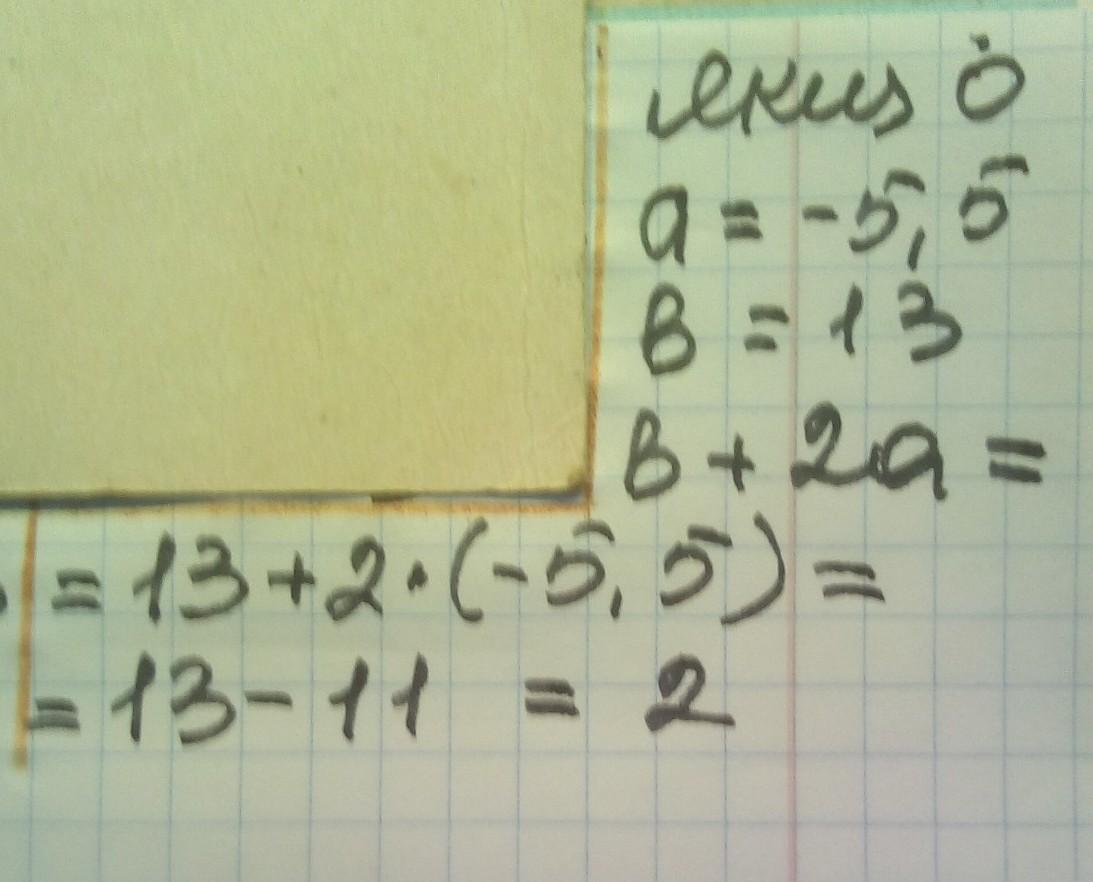 якщо
a = -5,5
в = 13
в + 2a =
= 13 + 2 · (-5,5) =
= 13 - 11 = 2